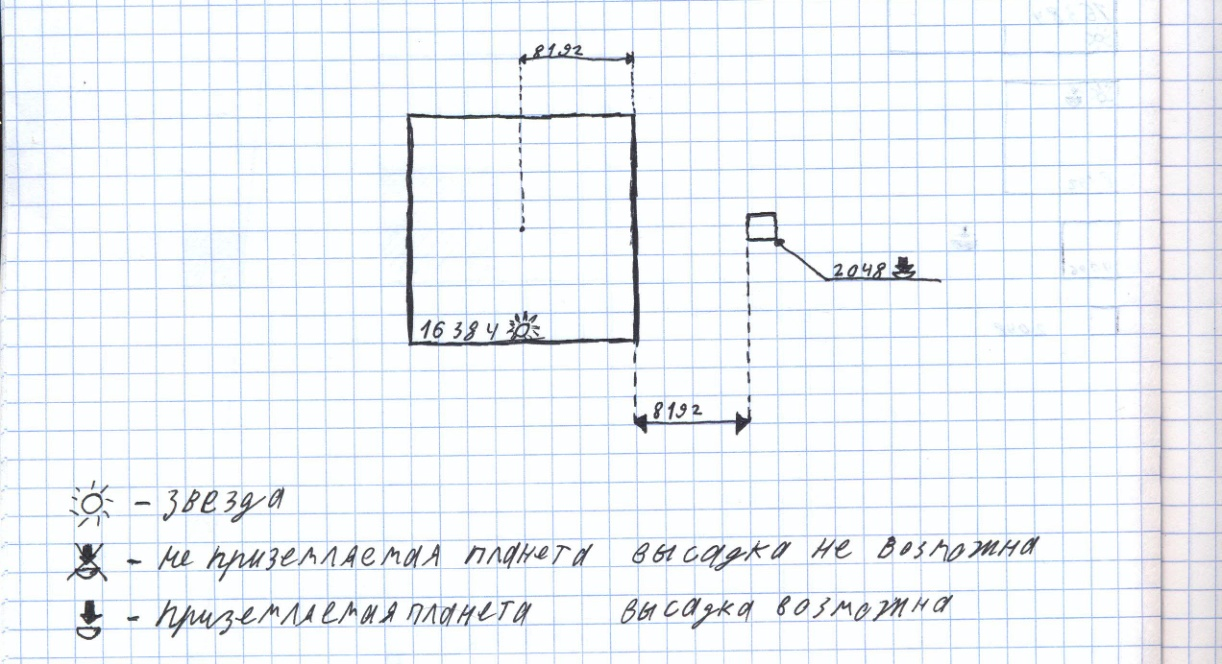 8192
16384
2048
8192
- звезда
- не приземляемая планета высадка не возможна
- приземляемая планета высадка возможна